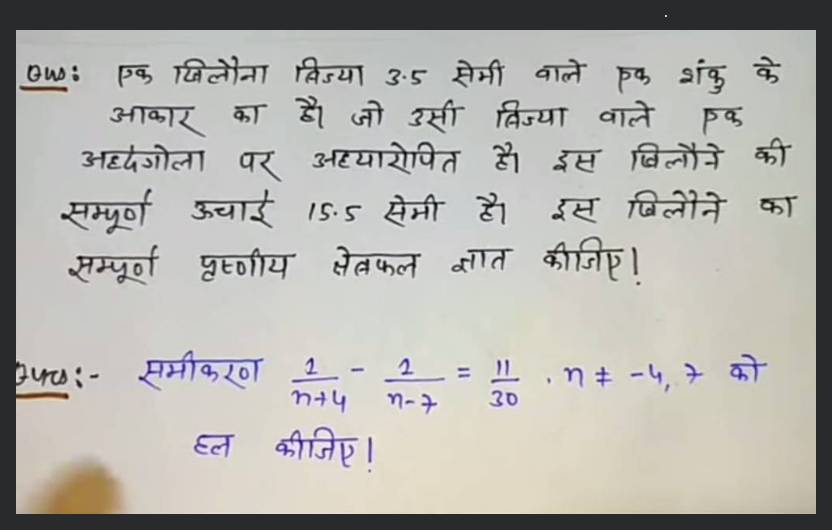 प्रश्न: एक खिलौना त्रिज्या 3.5 सेमी वाले एक शंकु के
आकार का है। जो उसी त्रिज्या वाले एक
अर्द्धगोला पर अध्यारोपित है। इस खिलौने की
सम्पूर्ण ऊचाई 15.5 सेमी है। इस खिलौने का
सम्पूर्ण पृष्ठीय क्षेत्रफल ज्ञात कीजिए!
प्रश्न:- समीकरण 1/n+4 - 1/n-7 = 11/30 . n ≠ -4, 7 को
हल कीजिए!